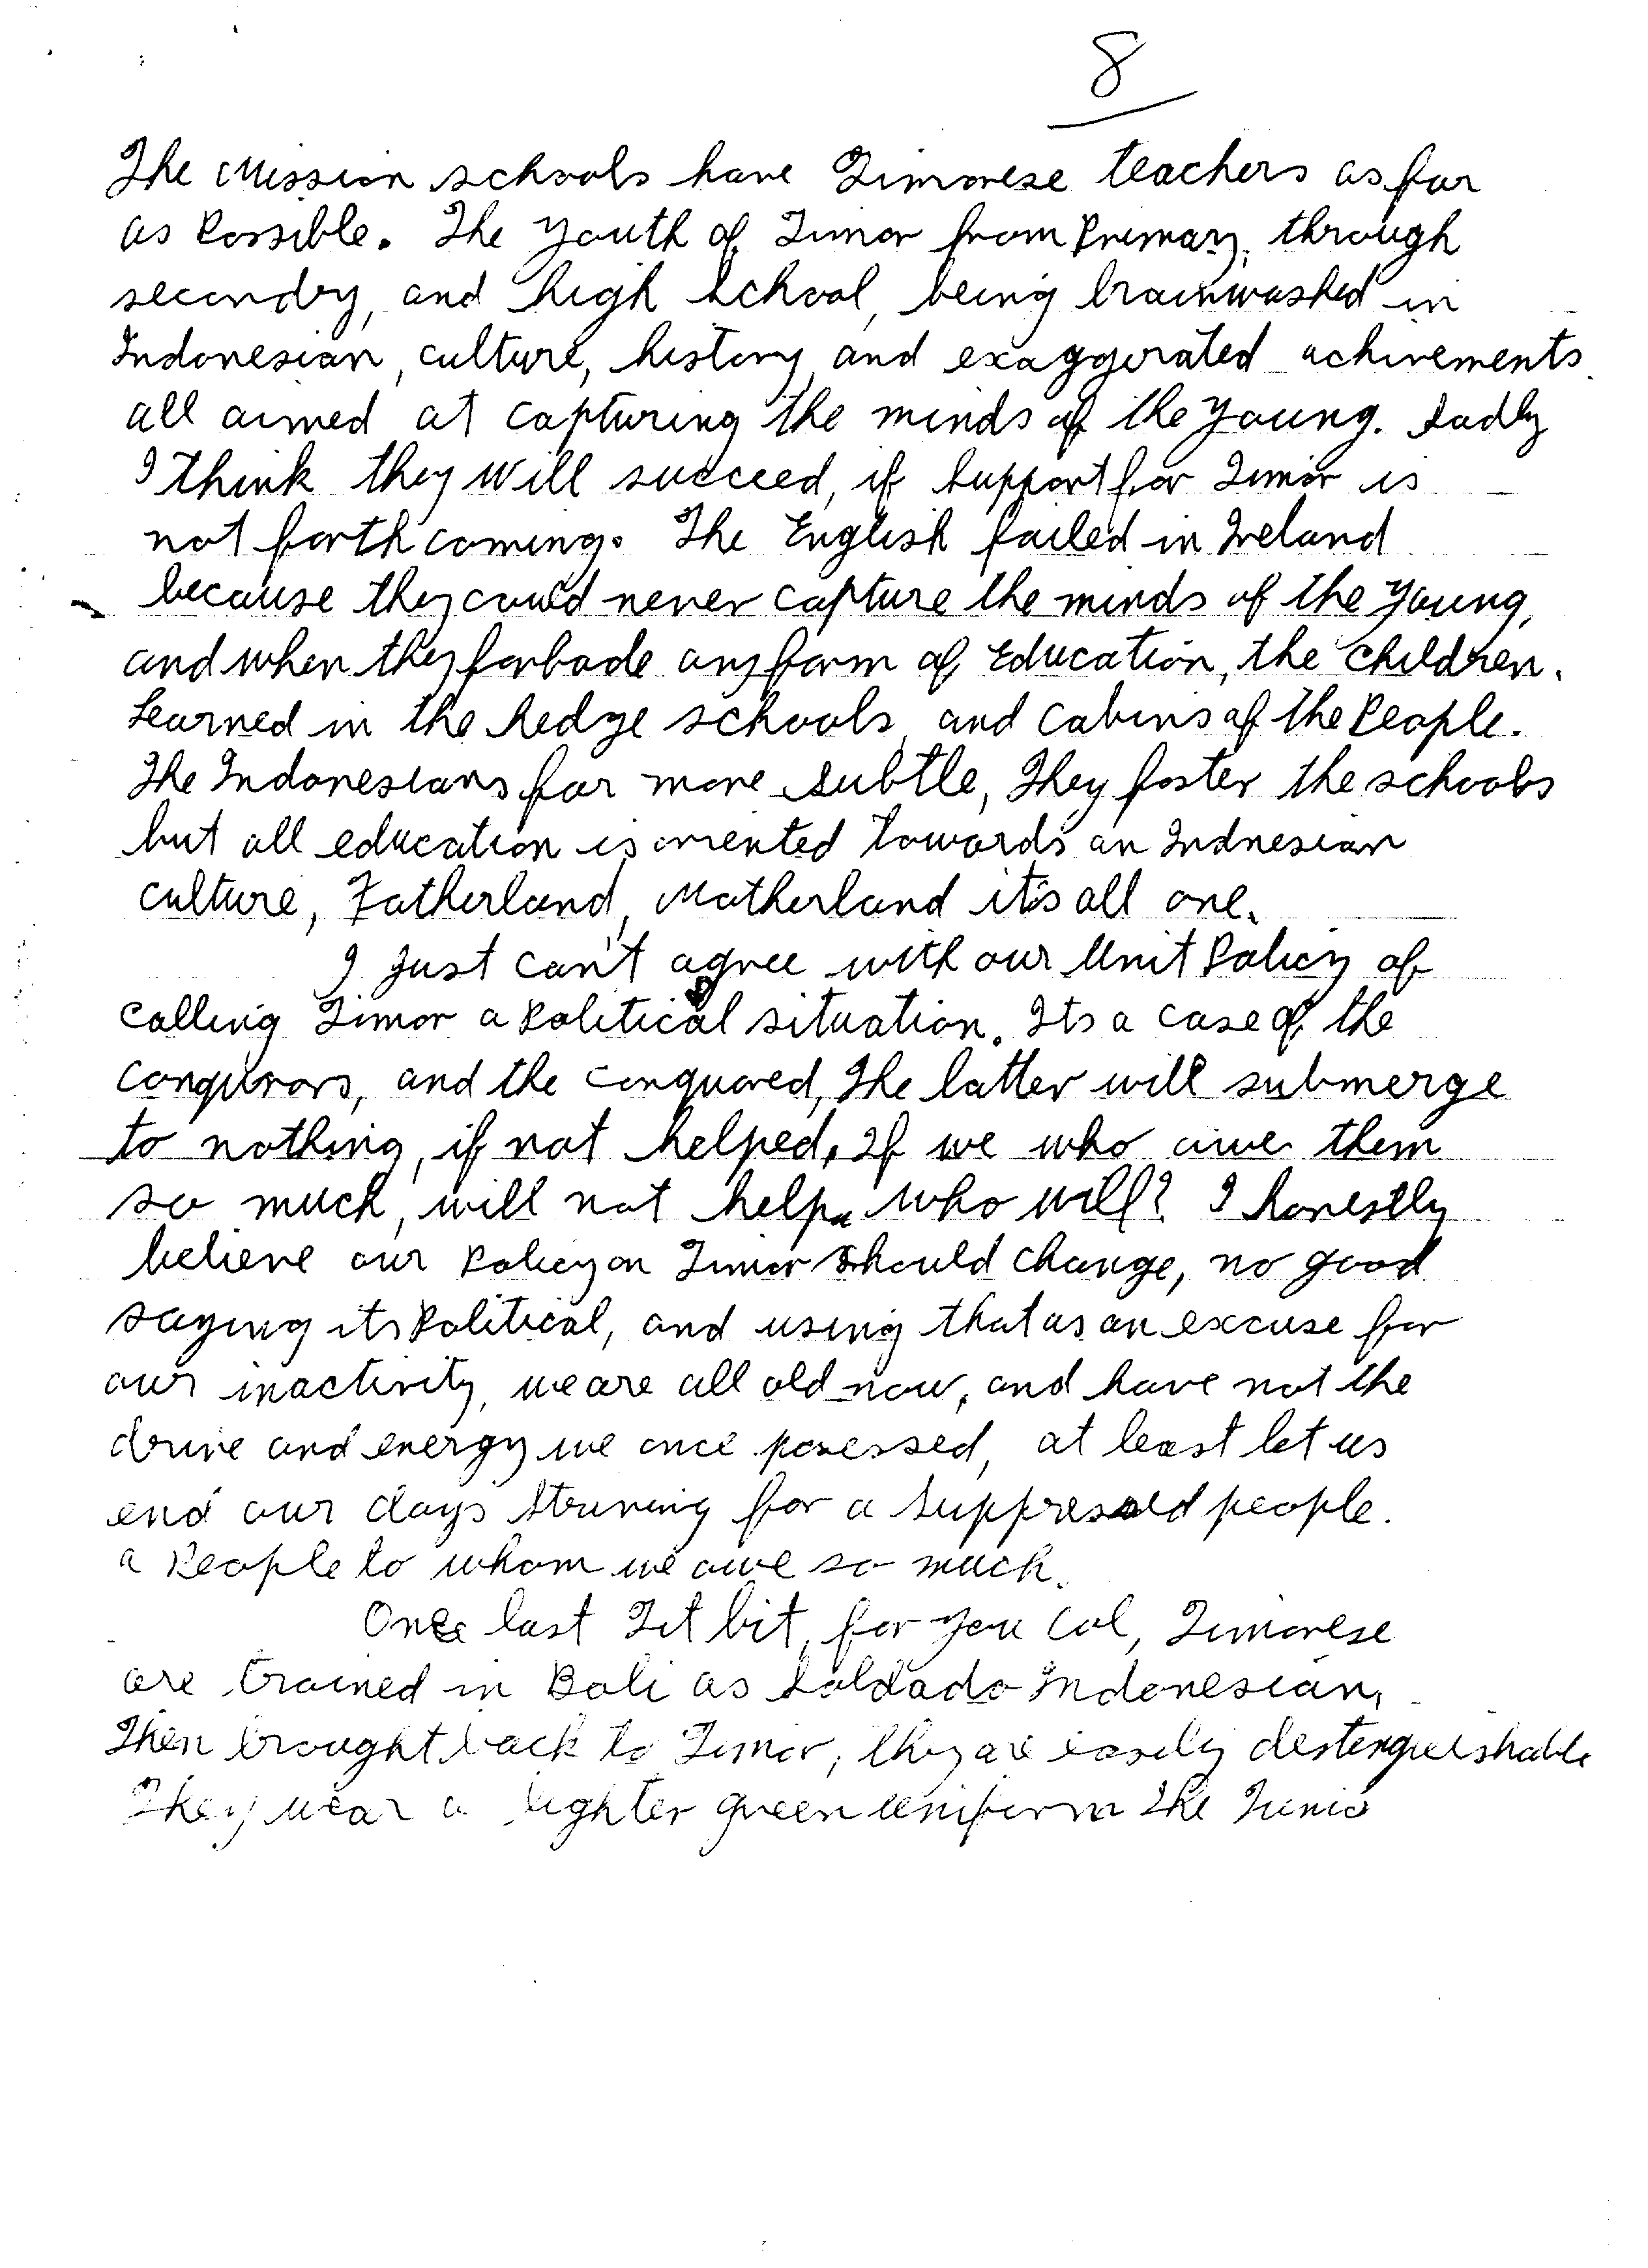 8
The Mission schools have Timorese teachers as far
as Possible. The Youth of Timor from Primary, through
secondry, and high school, being brainwashed in
Indonesian, culture, history, and exaggerated achivements
all aimed at capturing the minds of the Young. Sadly
I think they will succeed, if support for Timor is
not forth coming. The English failed in Ireland
because they could never capture the minds of the Young,
and when they forbade any form of Education, the children.
Learned in the hedge schools, and cabins of the People.
The Indonesians far more subtle, They foster the schools
but all education is oriented towards an Indnesian
culture, Fatherland, Motherland it's all one.
I just can't agree with our Unit Policy of
calling Timor a Political situation. Its a case of the
conqurors, and the conquored, the latter will submerge
to nothing, if not helped. If we who owe them
so much, will not help, who will? I honestly
believe our Policy on Timor should change, no good
saying its Political, and using that as an excuse for
our inactivity, we are all old now, and have not the
drive and energy we once posessed, at least let us
end our days striving for a suppressed people.
a People to whom we owe so much.
One last Tit bit, for you Col, Timorese
are trained in Bali as Soldado Indonesian,
Then brought back to Timor, they are easily destenguishable
They wear a lighter green uniform the Tunic